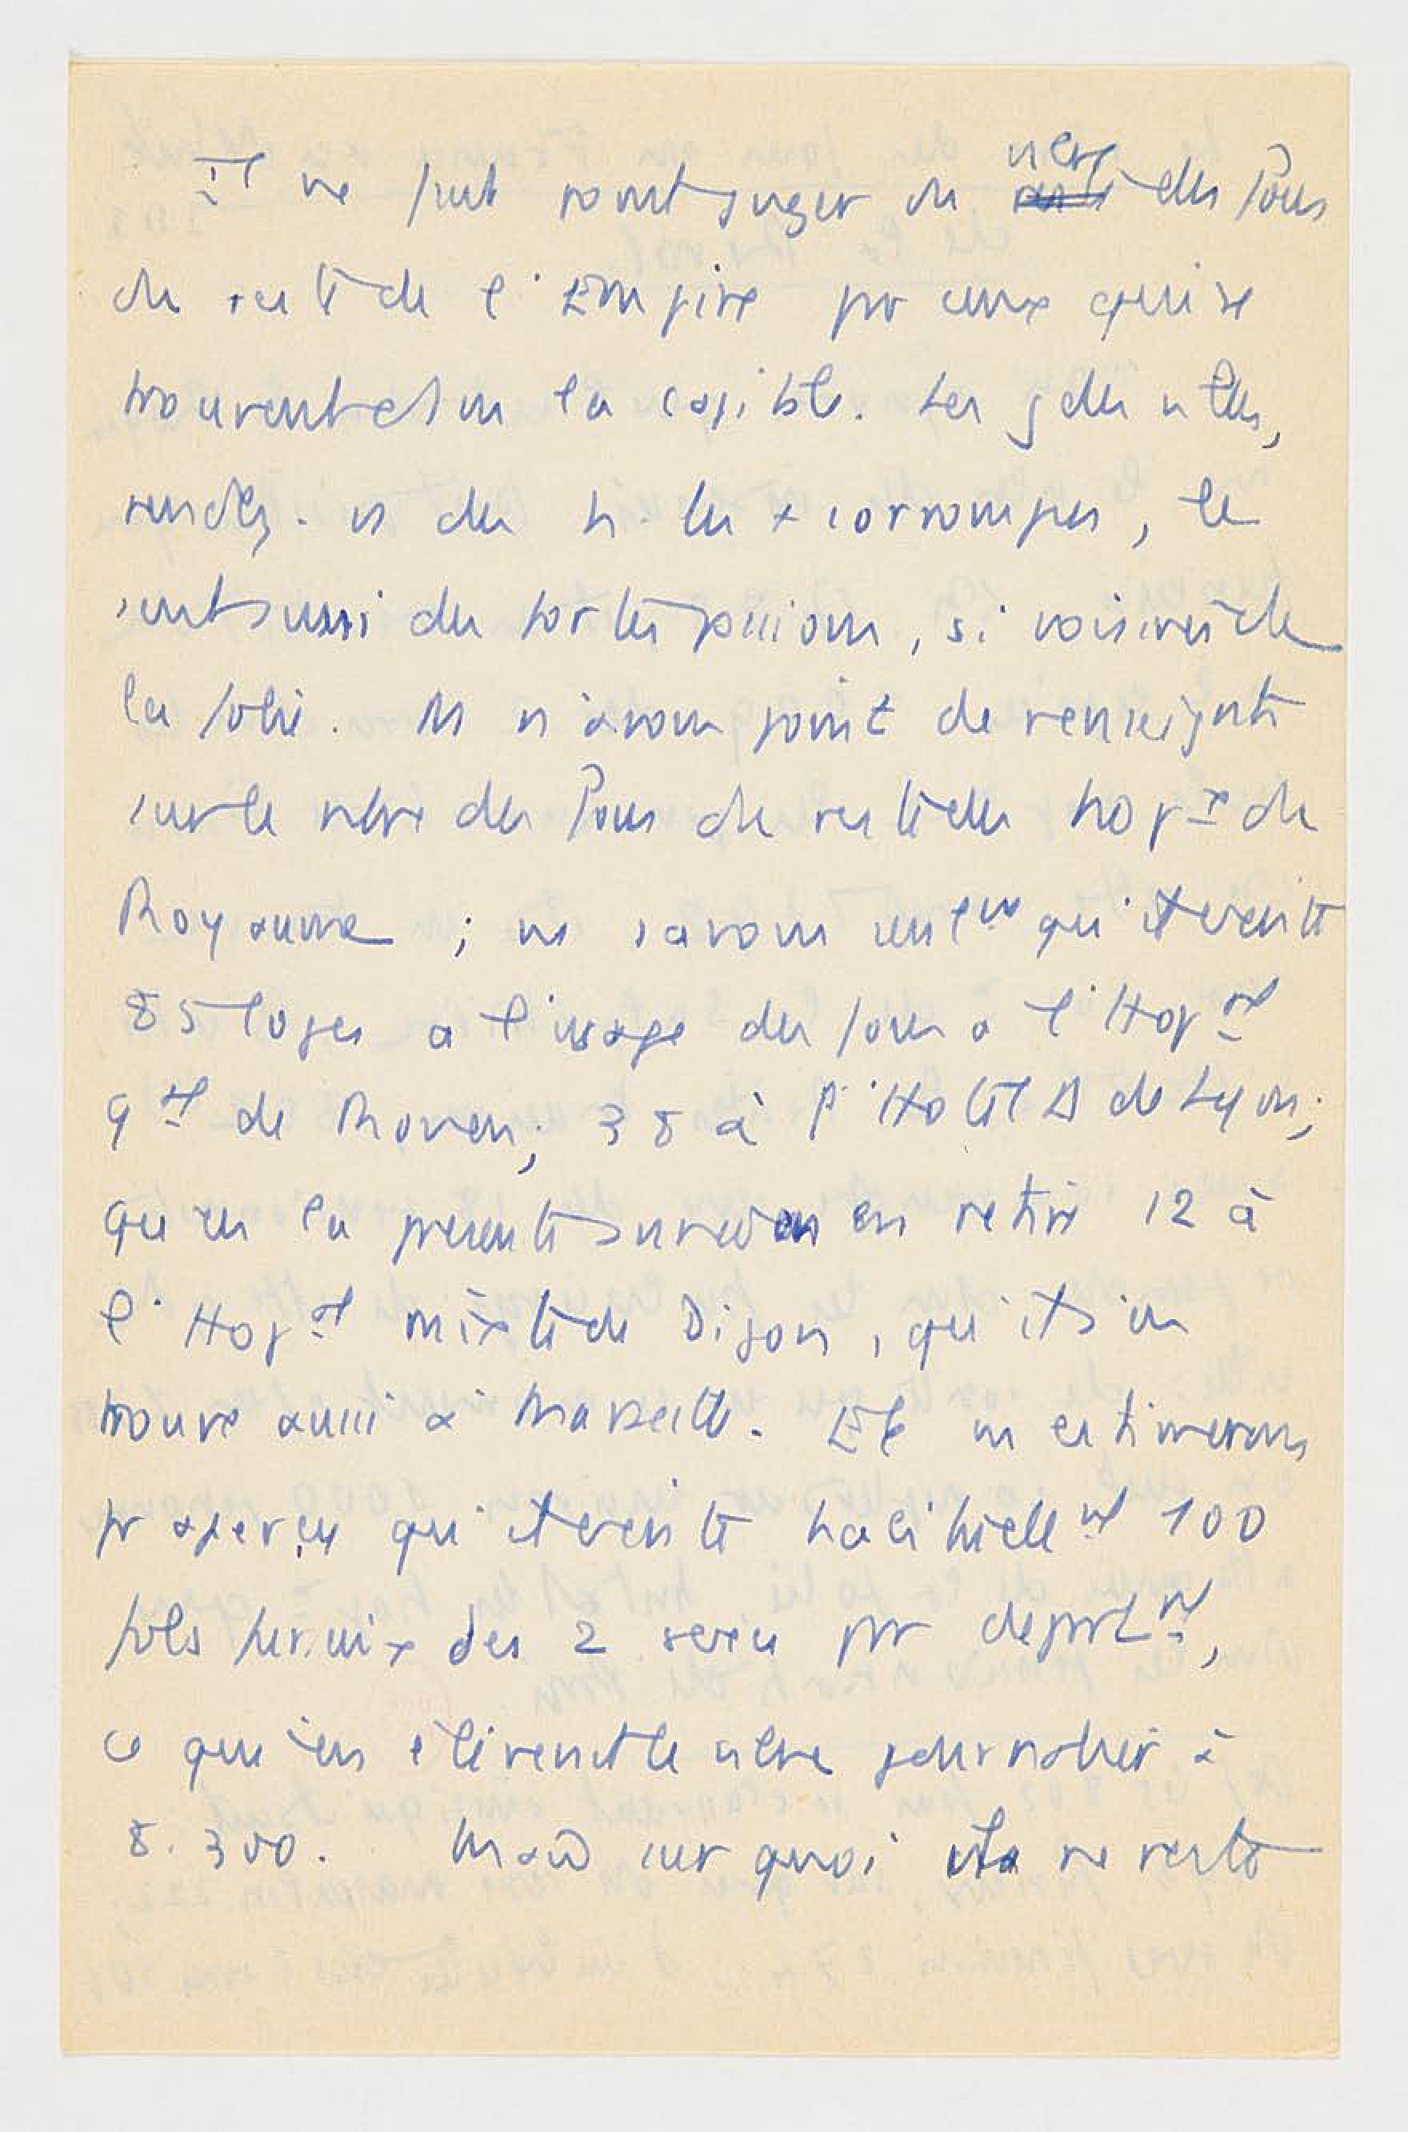 Il ne faut point juger du nbre des fous
du reste de l'Empire par ceux qui se
trouvent ds la capitale. Les gdes villes,
rendez-vs des h. les + corrompus, le
sont aussi des fortes passions, si voisines de
la folie. Ns n'avons point de renseignts
sur le nbre des fous du reste des hopx du
Royaume ; ns savons seulemt qu'il existe
85 loges à l'usage des fous à l'Hopal
gal de Rouen ; 38 à l'Hotel D de Lyon ;
qu'en la presente année on en retire 12 à
l'Hopal mixte de Dijon, qu'il s'en
trouve aussi à Marseille. Et ns estimerons
pr aperçu qu'il existe habituellemt 100
fols furieux des 2 sexes par departmt,
ce qui en éleverait le nbre journalier à
8.300. Mais sur quoi il ne reste